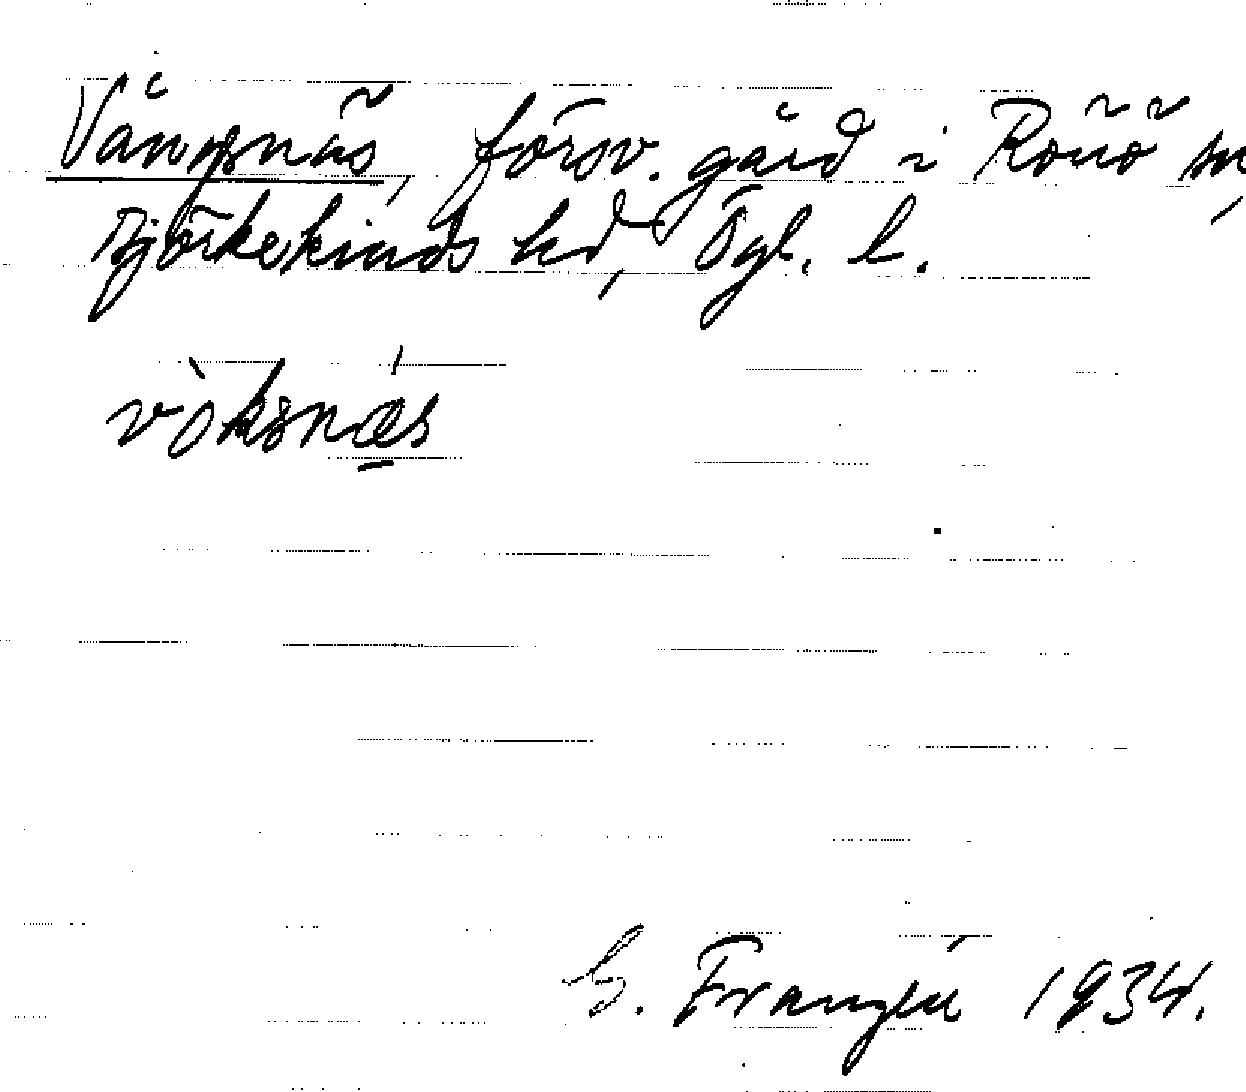 Vångsnäs, försv. gård i Rönö sn,
Björkekinds hd, Ögl. l.
vòksnǽ̲s
G. Franzén 1934.